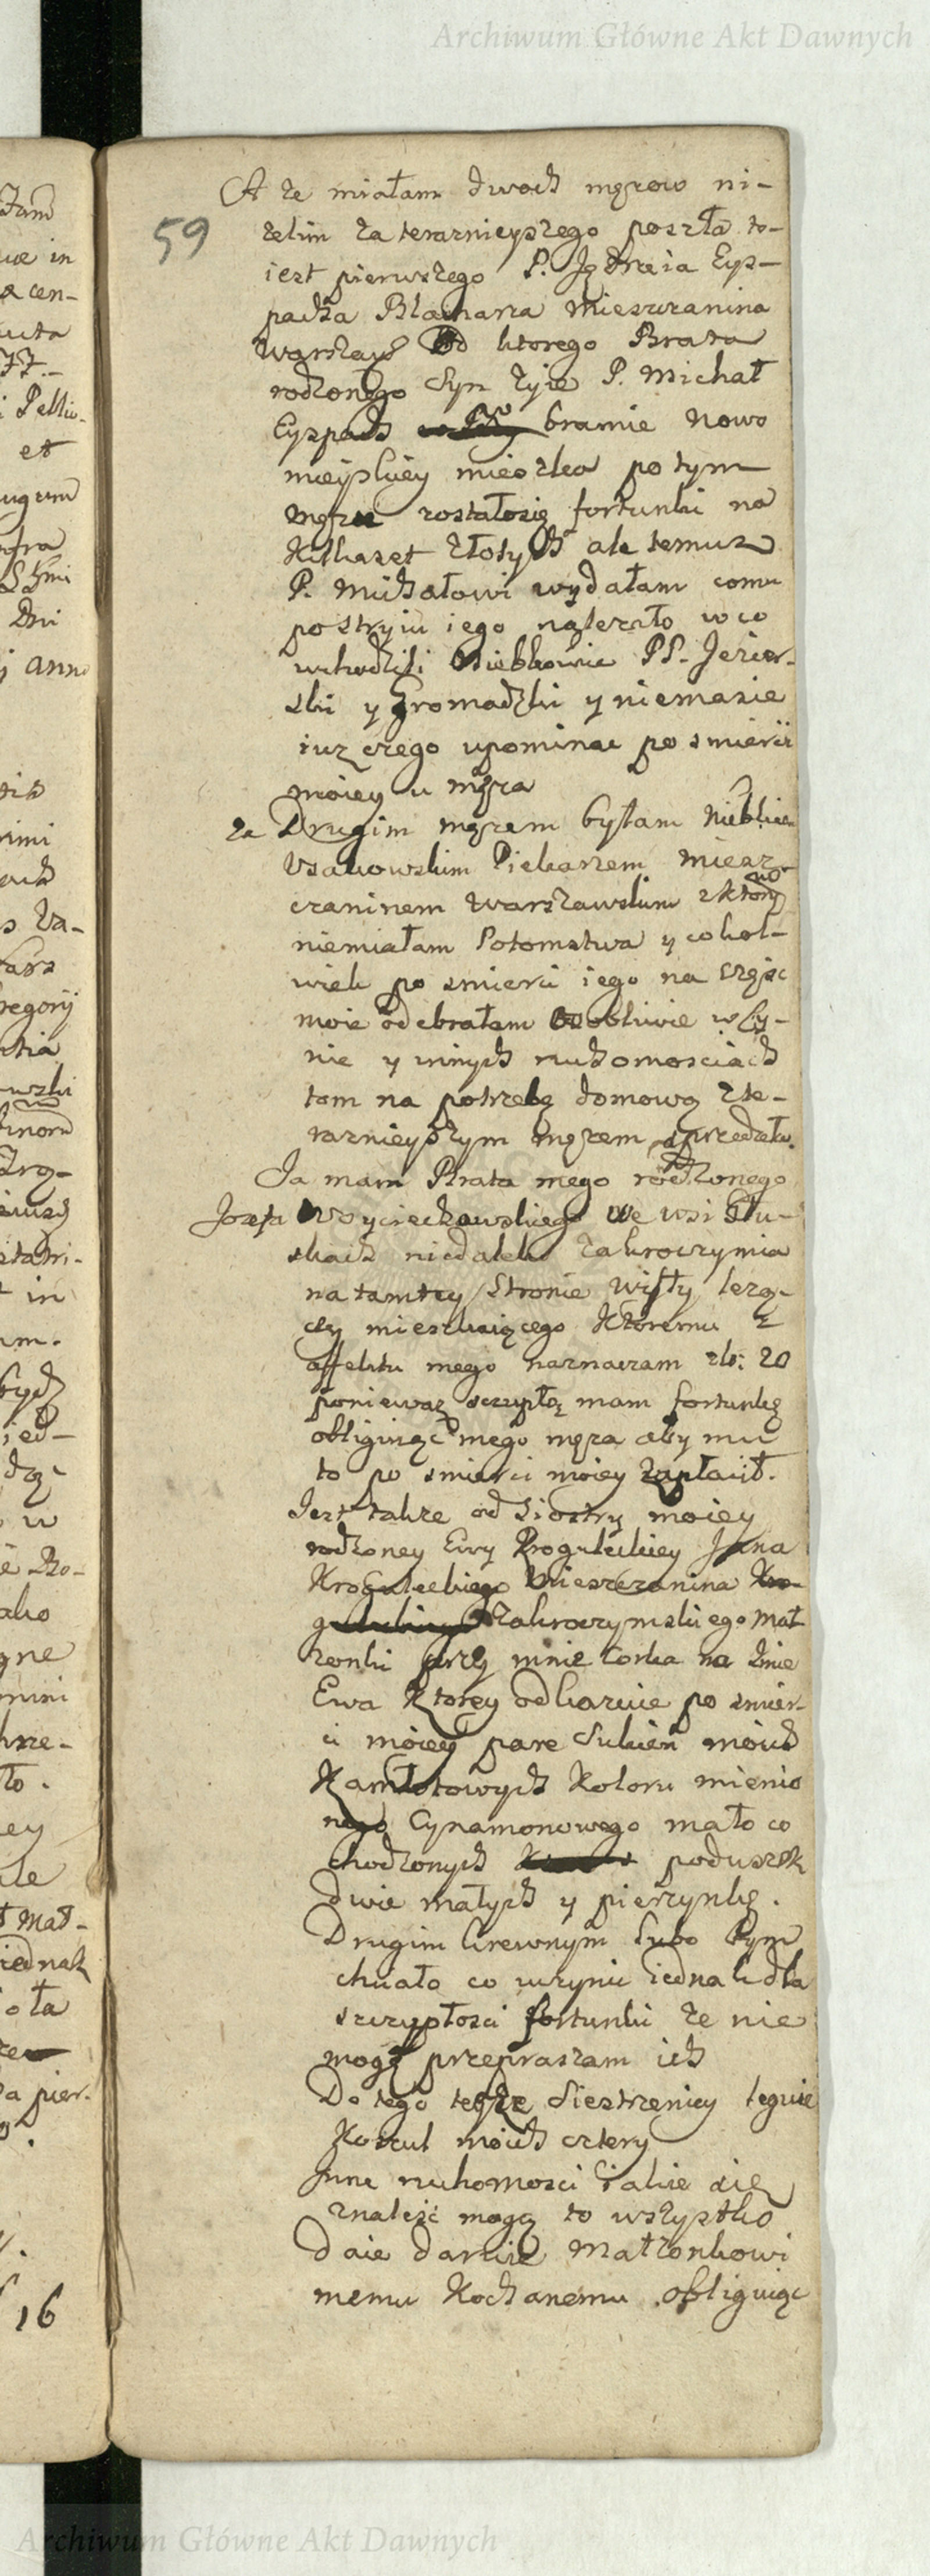 Archiwum Główne Akt Dawnych
59
A że miałam dwoch męzow ni-
zelim za terarnieyszego poszła to-
iest pierwszego P. Jędrzeia Eys-
padza Blacharza Mieszczanina
Warszaws Od ktorego Brata
rodzonego Syn żyie P. Michał
Eyspach bramie Nowo
mieyskiey mieszka po tym
mężu zostałosię fortunki na
Kilkaset złotych ale temuz
P. Michałowi wydałam comu
po stryiu iego należało w co
wchodzili Niebkowie PP. Jezior-
ski y Gromadzki y niemasie
iuz czego upominac po smierci
moiey u męza
za Drugim męzem byłam Niebkiem
Usakowskim Piekarzem miesz
czaninem Warszawskim z ktorym
niemiałam Potomstwa y cokol-
wiek po smierci iego na częsc
moie odebrałam osobliwie w Cy-
nie y innych ruchomosciach
tom na potrzebę domową z te-
razniejszym męzem sprzedała.
Ja mam Brata mego rodzonego
Jozefa Woyciechowskiego we wsi
skach niedaleko Zakroczymia
na tamtey Stronie Wisły lezą-
cey mieszkaiącego Ktoremu z
affektu mego naznaczam zło: 20
poniewaz szczupłą mam fortunkę
obliguiąc mego męza aby mu
to po smierci moiey zapłacił.
Jest takze od Siostry moiey
rodzoney Ewy Krogulecкiey Jana
Kroguleckiego Mieszczanina
Zakroczymskiego Mał
zonki przy mnie Corka na Jmie
Ewa Ktorey odkazuie po smier-
ci moiey pare Sukien moich
Kamlotowych Koloru mienio
nego Cynamonowego mało co
chodzonych poduszek
dwie małych y pierzynkę.
Drugim krewnym lubo bym
chciało co uczynic iednak dla
szczupłosci fortunki ze nie
mogę przepraszam ich
Do tego teyze Siestrzenicy leguie
Koszul moich cztery
Jnne ruchomosci iakie się
znalesć mogą to wszystko
daie daruie Małzonkowi
memu Kochanemu obliguiąc
16
Archiwum Główne Akt Dawnych